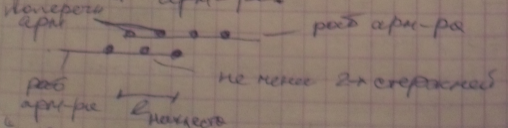 арм-р
поперечн
арм
раб арм-ра
раб
арм-ра
не менее 2-х стержней
ℓнахлеста